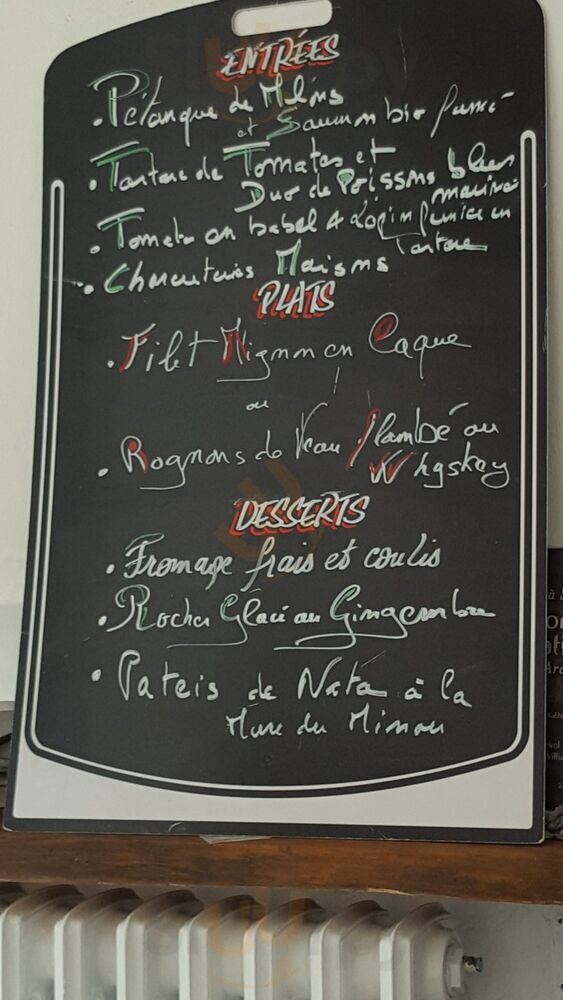 ENTRÉES
. Pétanque de Melons
et Saumon bio fumé
. Tartare de Tomates et
Duo de Poissons bleus
marinés
. Tomate en babel &
Tartare
. Charcuteries Maisons
PLATS
. Filet Mignon en Caque
ou
. Rognons de Veau flambé au
Whyskey
DESSERTS
. Fromage frais et coulis
. Rocher Glacé au Gingembre
. Pateis de Nata à la
Mure du Minou